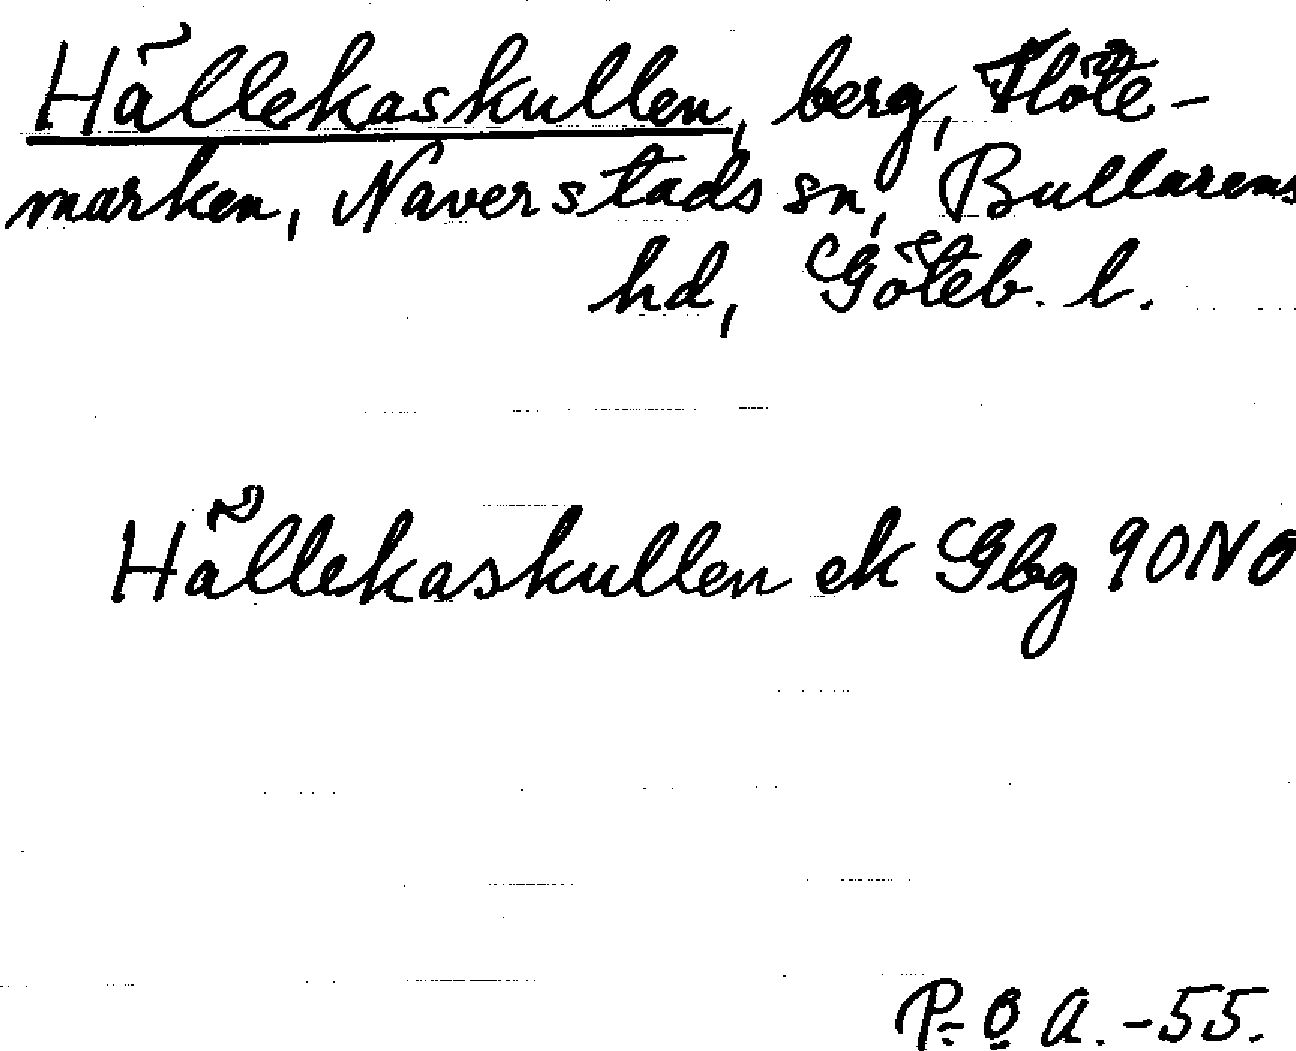 Hällekaskullen, berg, Flöte-
marken, Naverstads sn, Bullarens
hd, Göteb. l.
Hällekaskullen ek Gbg 90 NO
P-O A. -55.